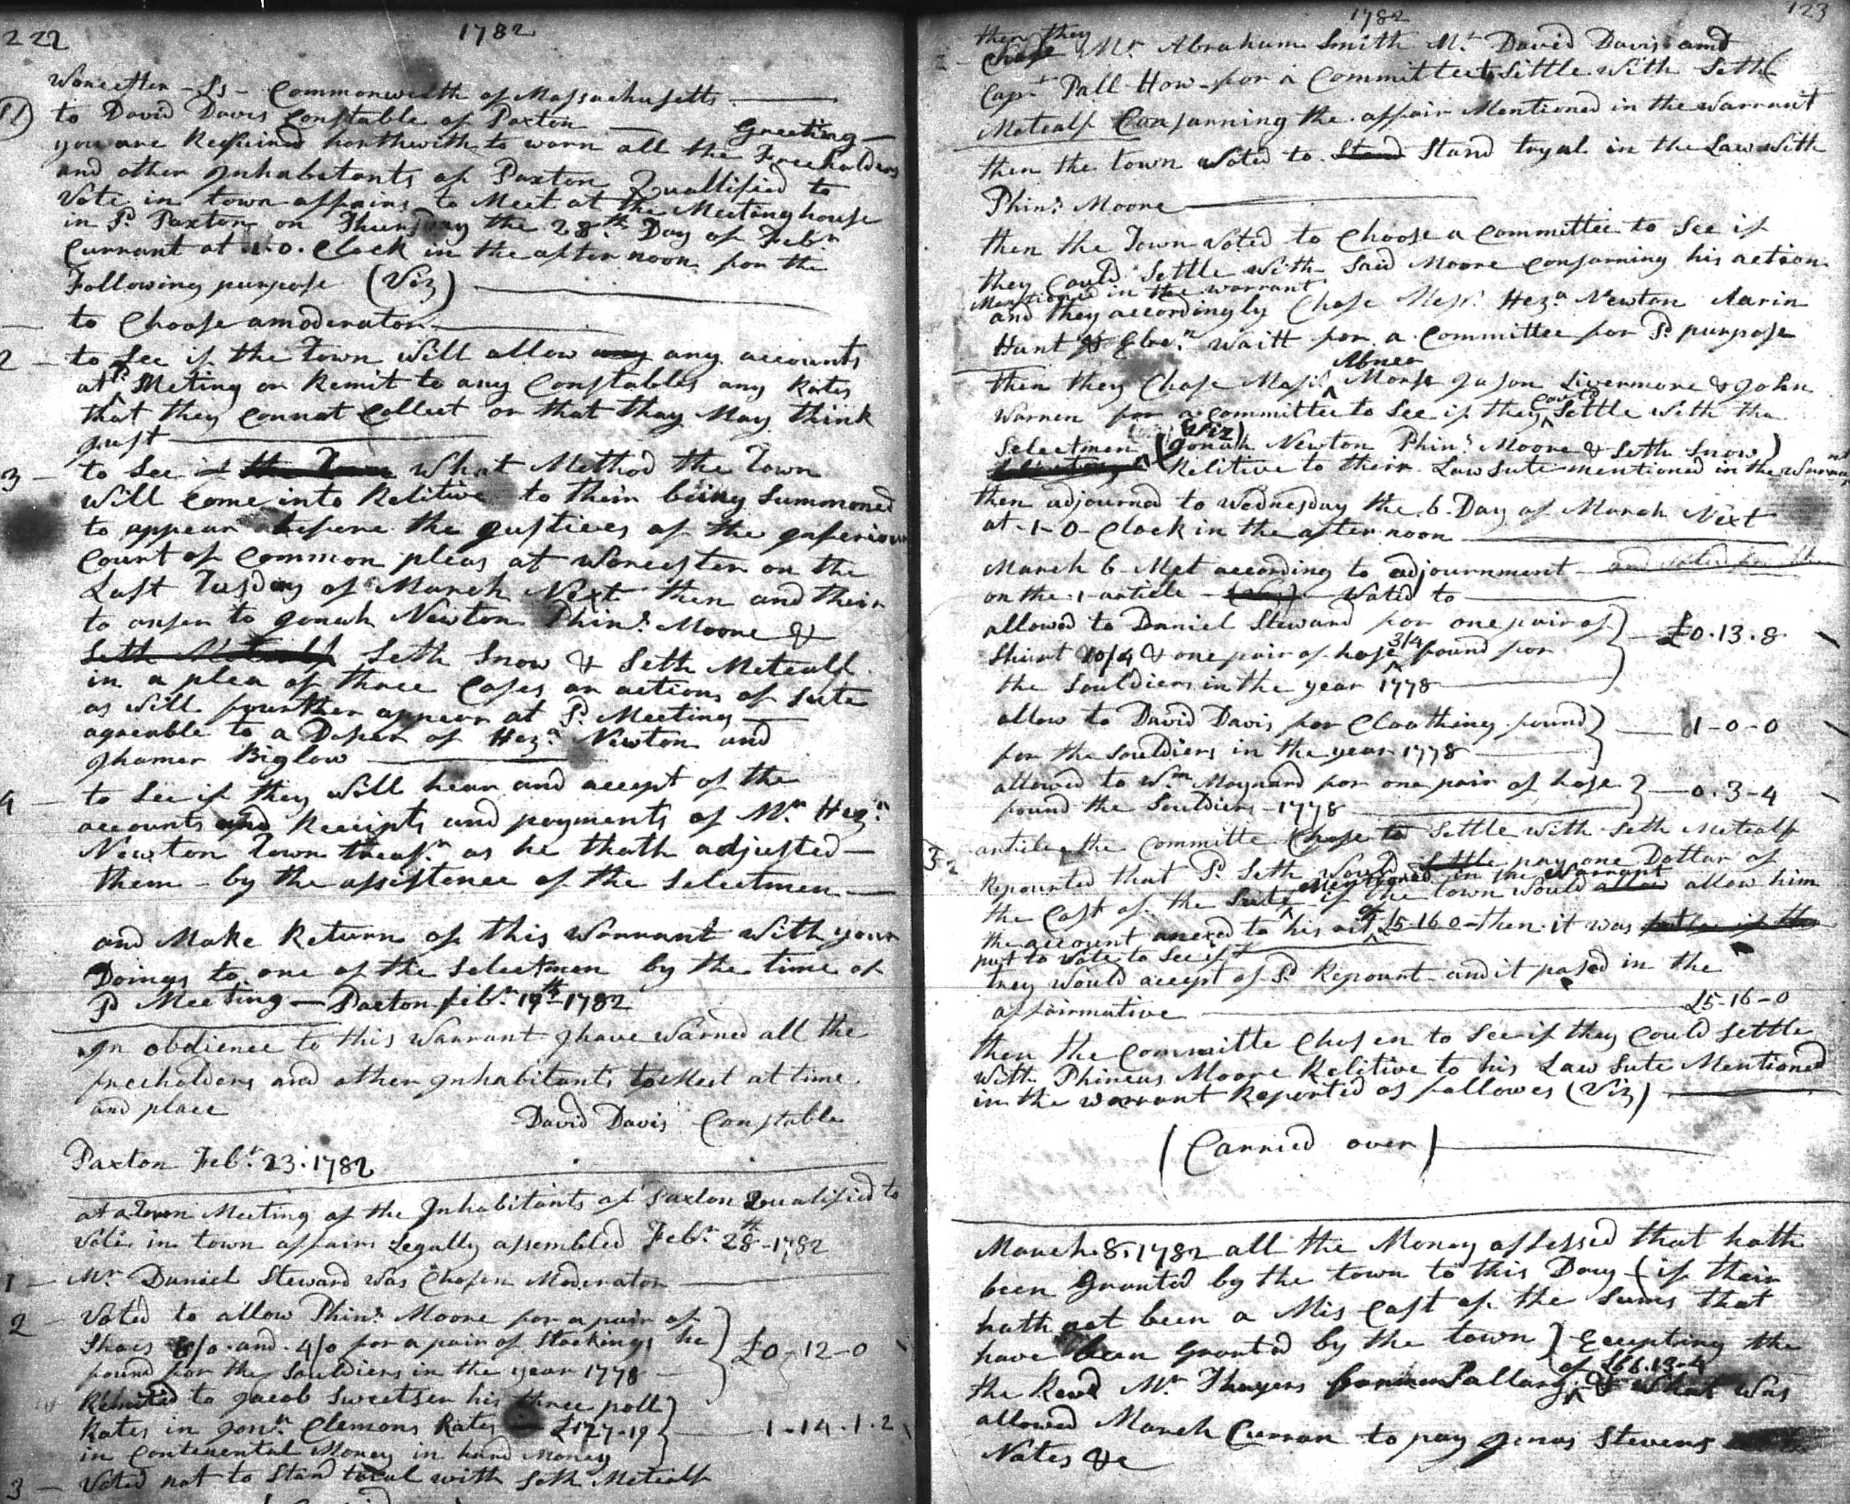 222
1782
Worcester - Ss - Commonwealth of Massachusetts
to David Davis Constable of Paxton Greeting
you are Required forthwith to warn all the Freeholders
and other Inhabitants of Paxton Quallified to
Vote in town affairs to Meet at the Meeting house
in Sd Paxton on Thursday the 28th Day of Febr
Currant at 1-0-Clock in the after noon for the
Following purpose (Viz)
to Choose a moderator
2 - to See if the Town Will allow any any accounts
at sd Meting or Remit to any Constables any Rates
that they connot Collect or that thay May think
Just
3 - to See if the Town What Method the Town
Will come into Relitive to their being Summoned
to appear before the Justices of the Inferiour
Court of Common pleas at Worcester on the
Last Tusday of March Next then and their
to anser to Jonah Newton Phins Moore &
Seth Metcalf Seth Snow & Seth Metcalf
in a plea of three Cases or actions of Sute
as Will fourther appear at Sd Meeting
agreable to a Desier of Heza Newton and
Ithamer Biglow
4 - to See if they Will hear and accept of the
accounts and Receipts and payments of Mr Heza
Newton Town treasr as he thath adjusted
them - by the assistence of the Selectmen
and Make Return of this Warrant With your
Doings to one of the Selectmen by the time of
Sd Meeting - Paxton febr 19th 1782
In obdience to this Warrant I have Warned all the
freeholders and other Inhabitants to Meet at time
and place
David Davis Constable
Paxton Febr 23. 1782
at a Town Meeting of the Inhabitants of Paxton Qualified to
Vote in town affairs Legally assembled Febr 28th - 1782
1 - Mr Daniel Steward Was Chosen Moderator
2 - Voted to allow Phins Moore for a pair of
Shoes 8/0 and 4/0 for a pair of Stockings he
found for the Souldiers in the year 1778 £0-12-0
Remited to Jacob Sweetser his three poll
Rates in Jonn Clemons Rates £127-19
in Continental Money in hard Money 1-14-1-2
3 - Voted not to Stand tryal with Seth Metcalf
1782
123
then they
Chose Mr Abraham Smith Mr David Davis and
Capt Pall How for a Committee to Settle With Seth
Metcalf Consarning the affair Mentioned in the Warrant
then the town Voted to Stand Stand tryal in the Law With
Phins Moore
then the Town Voted to Choose a Committee to See if
they Could Settle With Said Moore Consarning his action
Mentioned in the warrant
and they accordingly Chose Messrs Heza Newton Aarin
Hunt & Eber Waitt for a Committee for Sd purpose
then they Chose Majr Abner Morse Jason Livermore & John
Warren for a committee to See if they Could Settle With the
Selectmen (Viz) (Jonah Newton Phins Moore & Seth Snow)
Relitive to their Law Sute mentioned in the Warrant
then adjourned to Wednesday the 6 Day of March Next
at -1-0-Clock in the after noon
March 6 - Met according to adjournment
on the 1 article - (Viz) - Voted to
allowed to Daniel Steward for one pair of
Shirt 10/4 & one pair of hose 3/4 found for
the Souldiers in the year 1778 £0-13-8
allow to David Davis for Cloathing found
for the Souldiers in the year 1778 1-0-0
allowed to Wm Maynard for one pair of hose
found the Souldiers - 1778 0-3-4
3 article the Committe Chose to Settle With Seth Metcalf
Repourted that Sd Seth Would Settle pay one Dollar of
the Cost of the Sute Mentioned in the Warrant if the town Would allow allow him
the account anexed to his act of £5-16-0 then it was
put to Vote to See if
they Would accept of Sd Repourt and it pased in the
affairmative £5-16-0
then the Committe Chosen to See if they Could Settle
With Phineus Moore Relitive to his Law Sute Mentioned
in the warrant Reported as followes (Viz)
(Carried over)
March 8. 1782 all the Money assessed that hath
been Granted by the town to this Day - (if their
hath not been a Mis Cast of the Sums that
have been Granted by the town) Excepting the
the Revd Mr Thayers Sallary of £66.13-4 & What Was
allowed March Curran to pay Jonas Stevens
Notes &c